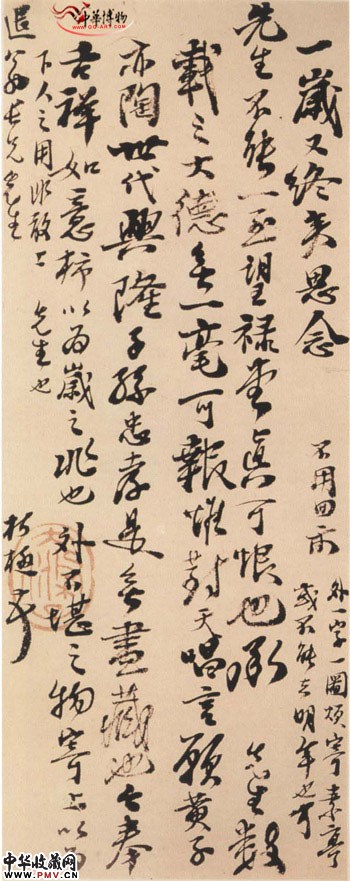 中华博物
一歲又終矣思念
先生不能一至望祿堂真可恨也承先生數
載之大德無一毫可報惟對天唱言願黃子
亦陶世代興隆子孫忠孝是無盡藏也奉
吉祥如意柿以為歲之兆也外不堪之物寄上以為
下人之用非敢上先生也
退翁長兄先生
不用回示
外一字一圖煩寄素亭
或不能來明年也可
中华收藏网
www.PMV.CN